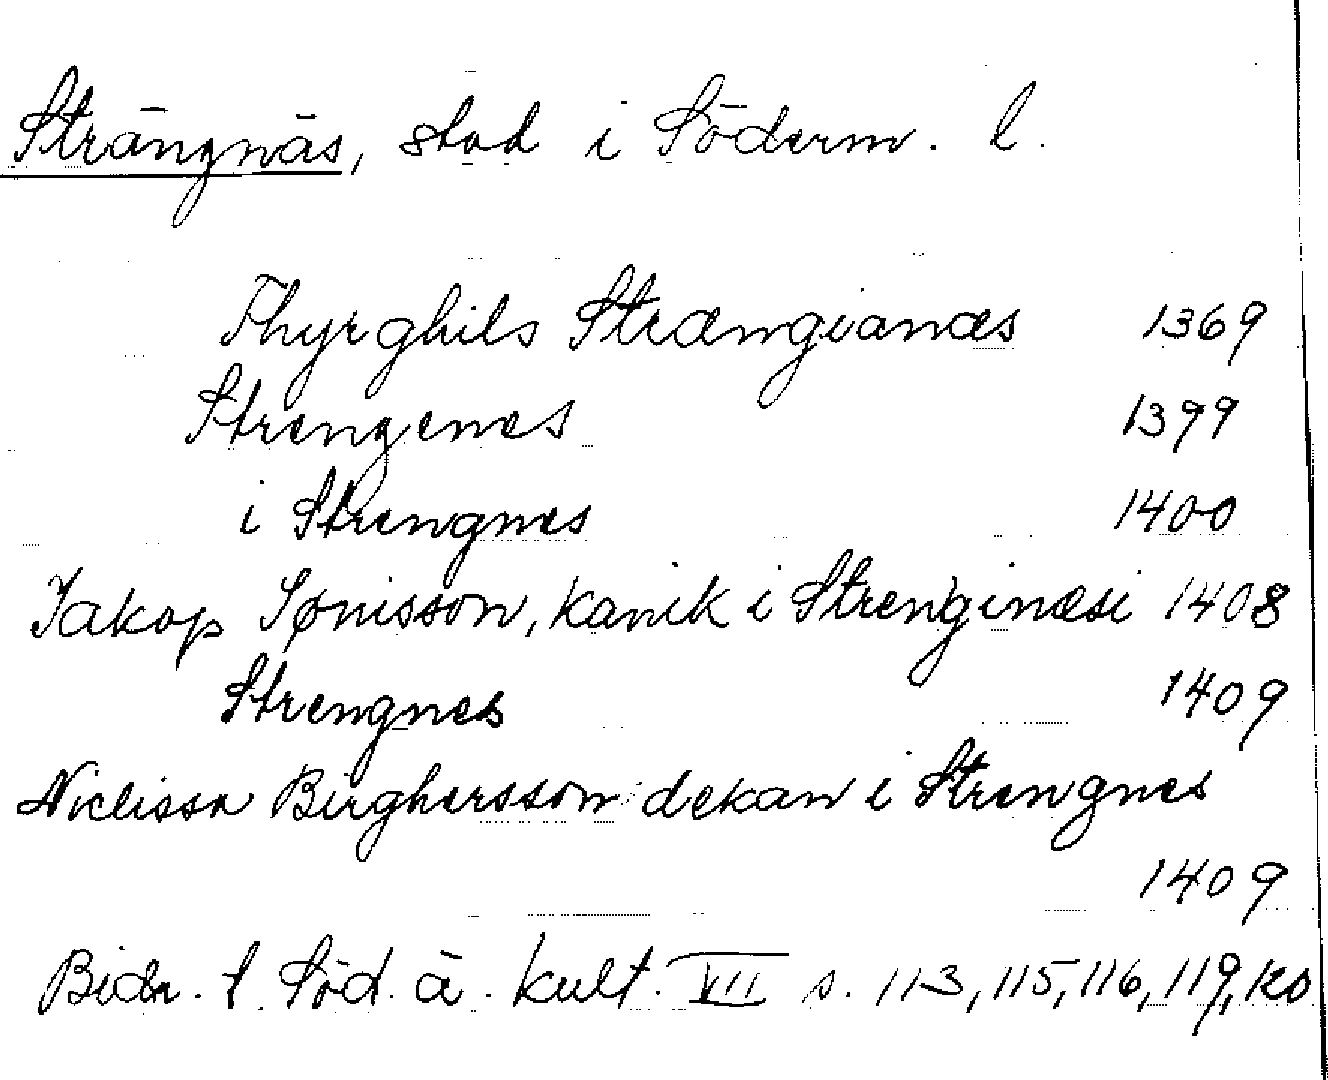 Strängnäs, stad i Söderm. l.
Thyrghils Strængianæs 1369
Strengenes 1399
i Strengnes 1400
Jakop Sønisson, kanik i Strenginæsi 1408
Strengnes 1409
Niclissa Birghersson dekan i Strengnes
1409
Bidr. t. Söd. ä. kult. VII s. 113, 115, 116, 119, 120